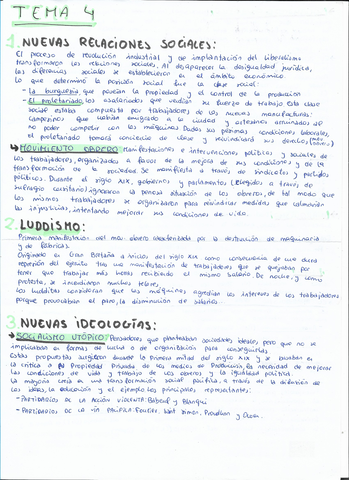 TEMA 4
1. NUEVAS RELACIONES SOCIALES:
El proceso de revolución industrial y de implantación del liberalismo
transformaron las relaciones sociales. Al desaparecer la desigualdad jurídica,
las diferencias sociales se establecieron en el ámbito económico
lo que determinó la posición social fue la clase social:
- La burguesía que poseían la propiedad y el control de la producción
- El proletariado, los asalariados que vendían su fuerza de trabajo. Esta clase
social estaba compuesta por trabajadores de las nuevas manufacturas:
campesinos que habían emigrado a la ciudad y artesanos arruinados al
no poder competir con las máquinas. Dadas sus pésimas condiciones laborales,
el proletariado tomará conciencia de clase y reivindicará sus derechos
→ MOVIMIENTO OBRERO: Manifestaciones e intervenciones políticas y sociales de
los trabajadores, organizados a favor de la mejora de sus condiciones y de la
transformación de la sociedad. Se manifiesta a través de sindicatos y partidos
políticos. Durante el siglo XIX, gobiernos y parlamentos (elegidos a través de
sufragio censitario) ignoraron la penosa situación de los obreros, de tal modo que
los mismos trabajadores se organizaron para reivindicar medidas que
las injusticias, intentando mejorar sus condiciones de vida.
2. LUDDISMO:
Primera manifestación del mov. obrero caracterizada por la destrucción de maquinaria
y de fábricas.
Originado en Gran Bretaña a inicios del siglo XIX como consecuencia de una dura
represión del ejército tras una manifestación de trabajadores que se quejaban por
tener que trabajar más horas recibiendo el mismo salario. De noche, y como
protesta, se incendiaron muchos telares.
Los luddistas consideran que las máquinas agredían los intereses de los trabajadores
porque provocaban el paro, la disminución de salarios.
3. NUEVAS IDEOLOGÍAS:
→ SOCIALISMO UTÓPICO: Pensadores que planteaban sociedades ideales, pero que no se
implicaban en formas de lucha o de organización para conseguirlas.
Estas propuestas surgieron durante la primera mitad del siglo XIX y se basaban en
la crítica a la Propiedad Privada de los medios de Producción, la necesidad de mejorar
las condiciones de vida y trabajo de los obreros y la igualdad política.
La mayoría creía en una transformación social pacífica, a través de la difusión de
las ideas, la educación y el ejemplo. Sus principales representantes:
- PARTIDARIOS DE LA ACCIÓN VIOLENTA: Babeuf y Blanqui
- PARTIDARIOS DE LA VÍA PACÍFICA: Fourier, Saint Simon, Proudhon y Owen.